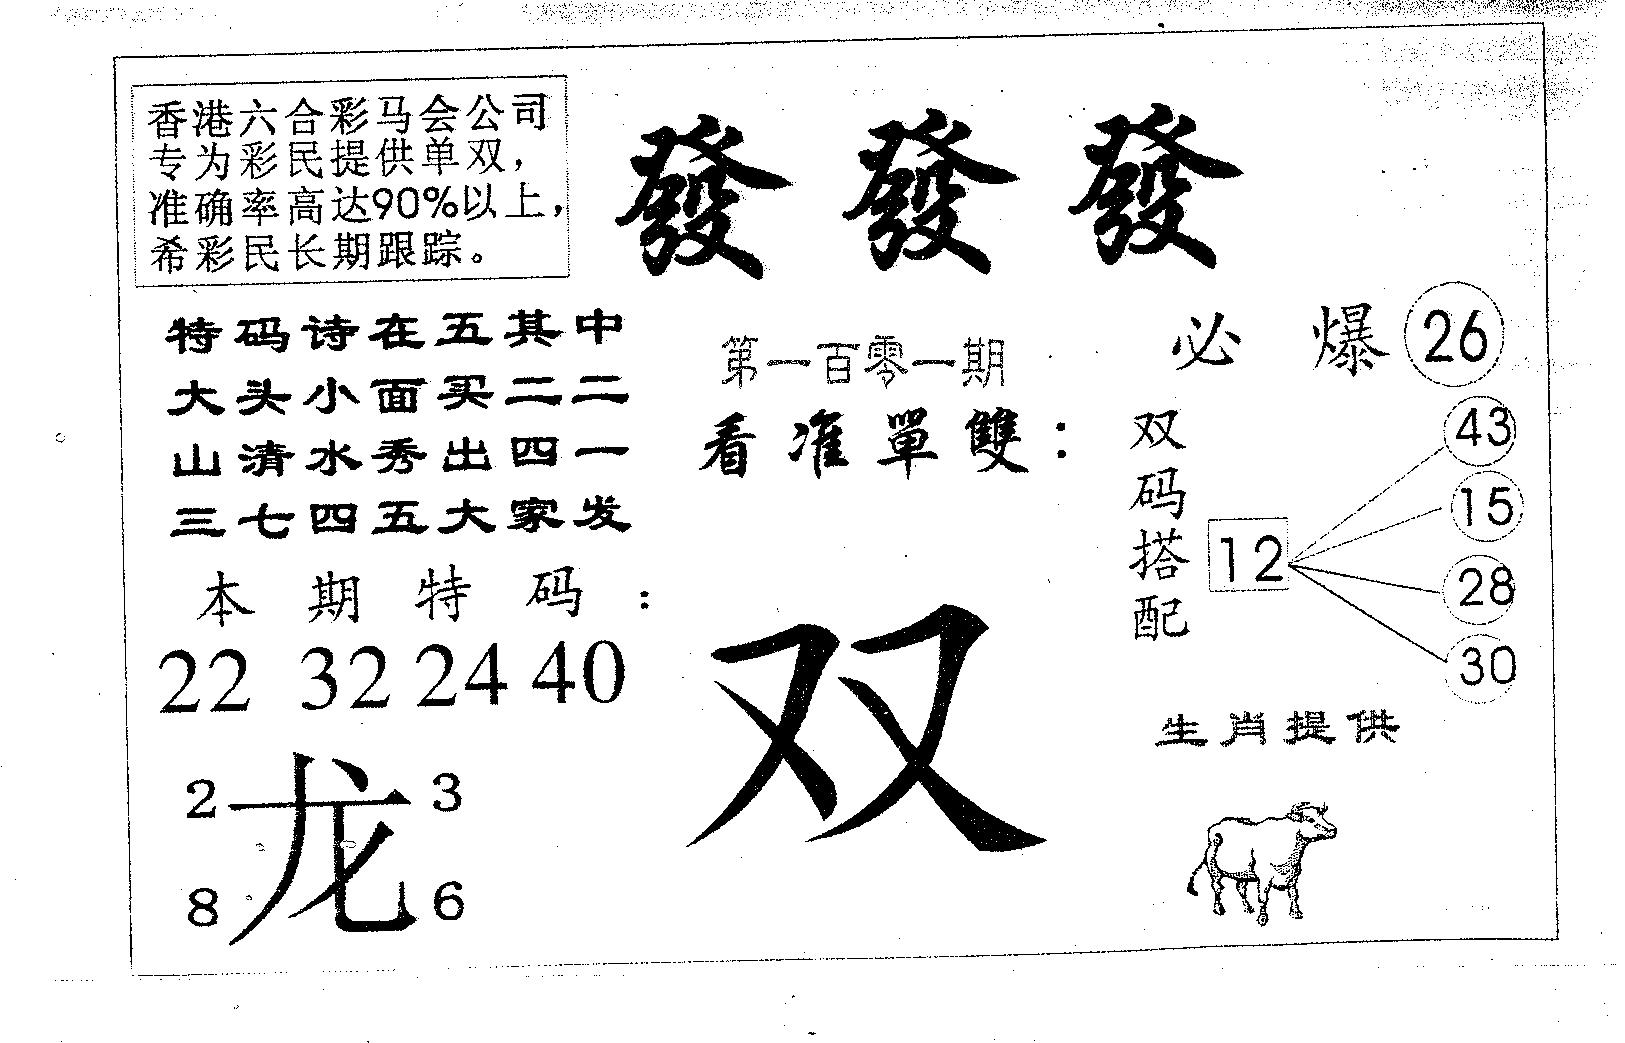 香港六合彩马会公司
专为彩民提供单双，
准确率高达90%以上，
希彩民长期跟踪。
發發發
特码诗在五其中
大头小面买二二
山清水秀出四一
三七四五大家发
本期特码：
22 32 24 40
2 3
龙
8 6
第一百零一期
看准單雙：
双
必爆 26
双码搭配
12
43
15
28
30
生肖提供